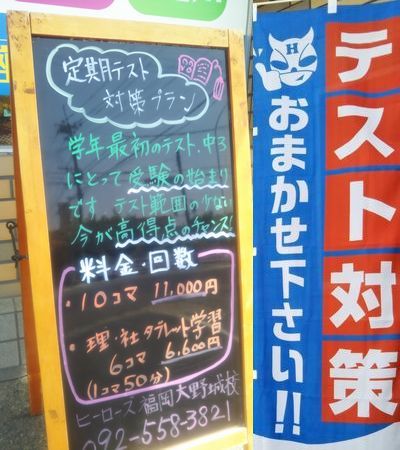 定期テスト
対策プラン
学年最初のテスト、中3
にとって受験の始まり
です テスト範囲の少ない
今が高得点のチャンス!
料金・回数
・10コマ 11,000円
・理・社 タブレット学習
6コマ 6,600円
(1コマ50分)
ヒーローズ福岡大野城校
092-558-3821
H
テスト対策
おまかせ下さい!!